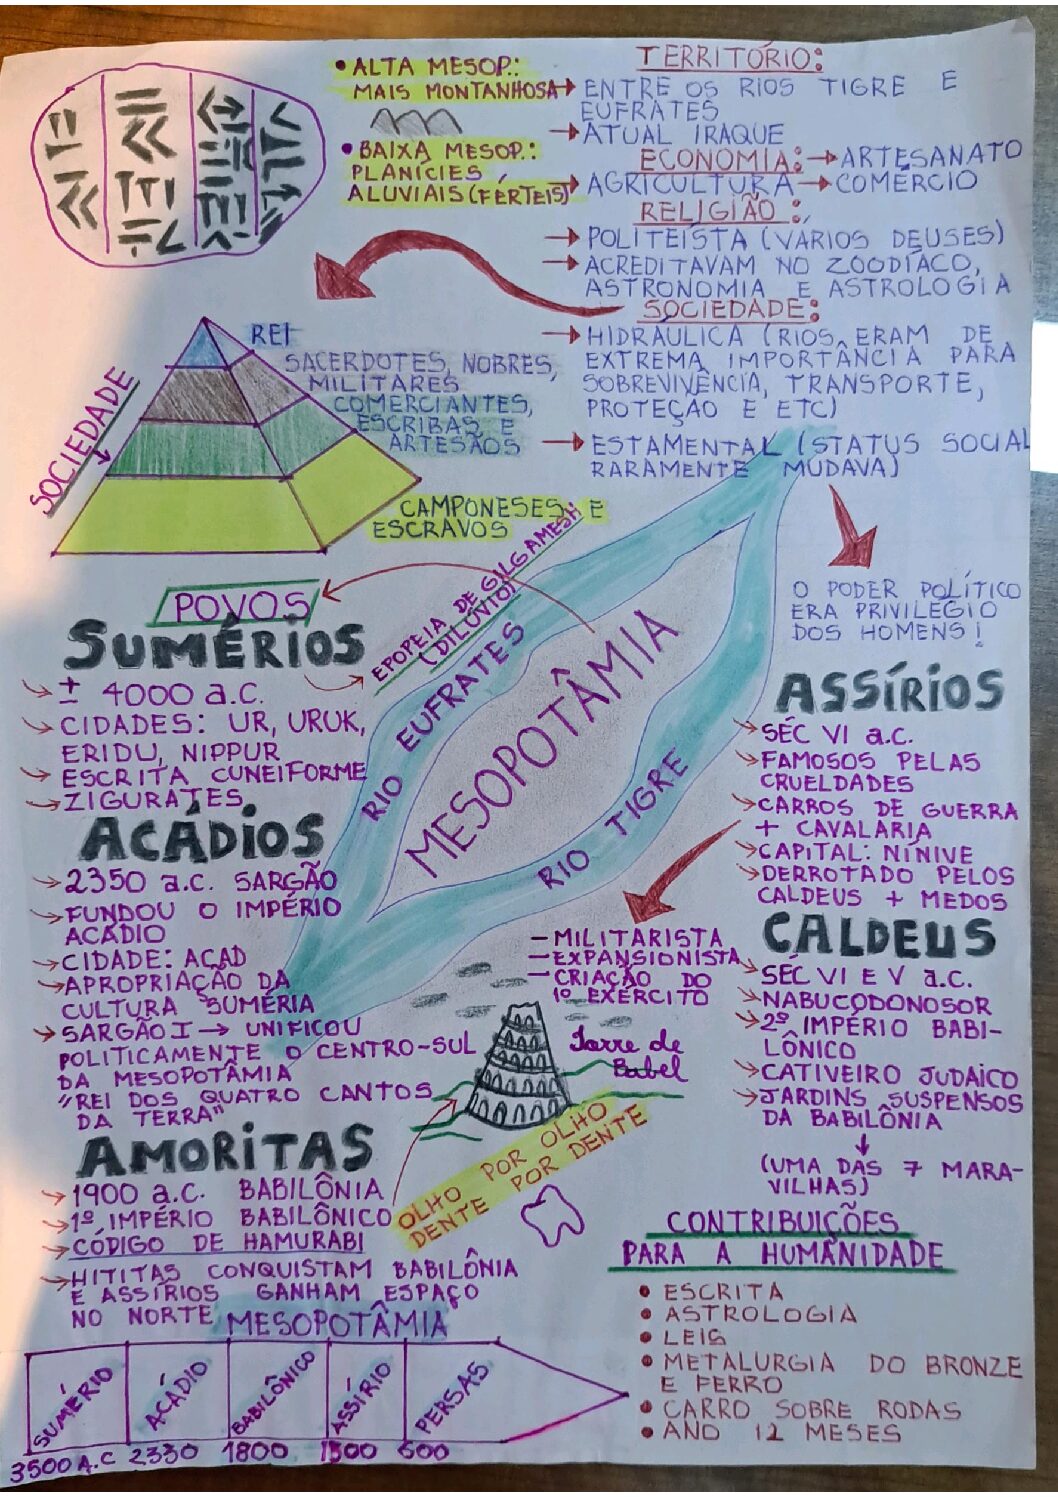 • ALTA MESOP.:
MAIS MONTANHOSA
• BAIXA MESOP.:
PLANÍCIES
ALUVIAIS (FÉRTEIS)
TERRITÓRIO:
→ ENTRE OS RIOS TIGRE E
EUFRATES
→ ATUAL IRAQUE
ECONOMIA: → ARTESANATO
→ AGRICULTURA → COMÉRCIO
RELIGIÃO:
→ POLITEÍSTA (VÁRIOS DEUSES)
→ ACREDITAVAM NO ZOODÍACO,
ASTRONOMIA E ASTROLOGIA
SOCIEDADE:
→ HIDRÁULICA (RIOS ERAM DE
EXTREMA IMPORTÂNCIA PARA
SOBREVIVÊNCIA, TRANSPORTE,
PROTEÇÃO E ETC)
→ ESTAMENTAL (STATUS SOCIAL
RARAMENTE MUDAVA)
O PODER POLÍTICO
ERA PRIVILÉGIO
DOS HOMENS!
SOCIEDADE
REI
SACERDOTES, NOBRES,
MILITARES
COMERCIANTES,
ESCRIBAS, E
ARTESÃOS
CAMPONESES E
ESCRAVOS
POVOS
SUMÉRIOS
→ ± 4000 a.C.
→ CIDADES: UR, URUK,
ERIDU, NIPPUR
→ ESCRITA CUNEIFORME
→ ZIGURATES
EPOPEIA DE GILGAMESH
(DILÚVIO)
RIO EUFRATES
MESOPOTÂMIA
RIO TIGRE
ACÁDIOS
→ 2350 a.C. SARGÃO
→ FUNDOU O IMPÉRIO
ACÁDIO
→ CIDADE: ACAD
→ APROPRIAÇÃO DA
CULTURA SUMÉRIA
→ SARGÃO I → UNIFICOU
POLITICAMENTE O CENTRO-SUL
DA MESOPOTÂMIA
"REI DOS QUATRO CANTOS
DA TERRA"
AMORITAS
→ 1900 a.C. BABILÔNIA
→ 1º IMPÉRIO BABILÔNICO
→ CÓDIGO DE HAMURABI
→ HITITAS CONQUISTAM BABILÔNIA
E ASSÍRIOS GANHAM ESPAÇO
NO NORTE
OLHO POR OLHO
DENTE POR DENTE
Torre de
Babel
ASSÍRIOS
→ SÉC VI a.C.
→ FAMOSOS PELAS
CRUELDADES
→ CARROS DE GUERRA
+ CAVALARIA
→ CAPITAL: NÍNIVE
→ DERROTADO PELOS
CALDEUS + MEDOS
— MILITARISTA
— EXPANSIONISTA
— CRIAÇÃO DO
1º EXÉRCITO
CALDEUS
→ SÉC VI E V a.C.
→ NABUCODONOSOR
→ 2º IMPÉRIO BABI-
LÔNICO
→ CATIVEIRO JUDAICO
→ JARDINS SUSPENSOS
DA BABILÔNIA
↓
(UMA DAS 7 MARA-
VILHAS)
CONTRIBUIÇÕES
PARA A HUMANIDADE
• ESCRITA
• ASTROLOGIA
• LEIS
• METALURGIA DO BRONZE
E FERRO
• CARRO SOBRE RODAS
• ANO 12 MESES
MESOPOTÂMIA
SUMÉRIO ACÁDIO BABILÔNICO ASSÍRIO PERSAS
3500 A.C 2330 1800 1300 600